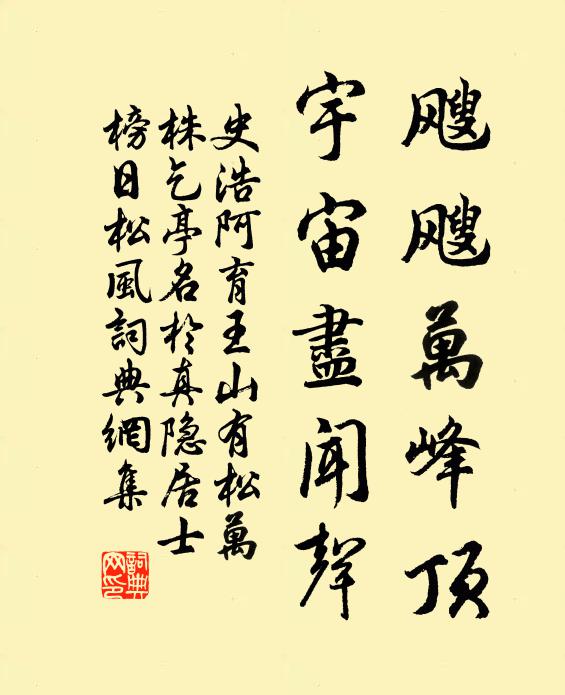 颼颼萬峰頂
宇宙盡聞聲
史浩阿育王山有松萬
株乞亭名於真隐居士
榜日松風詞典網集
詞典
网印